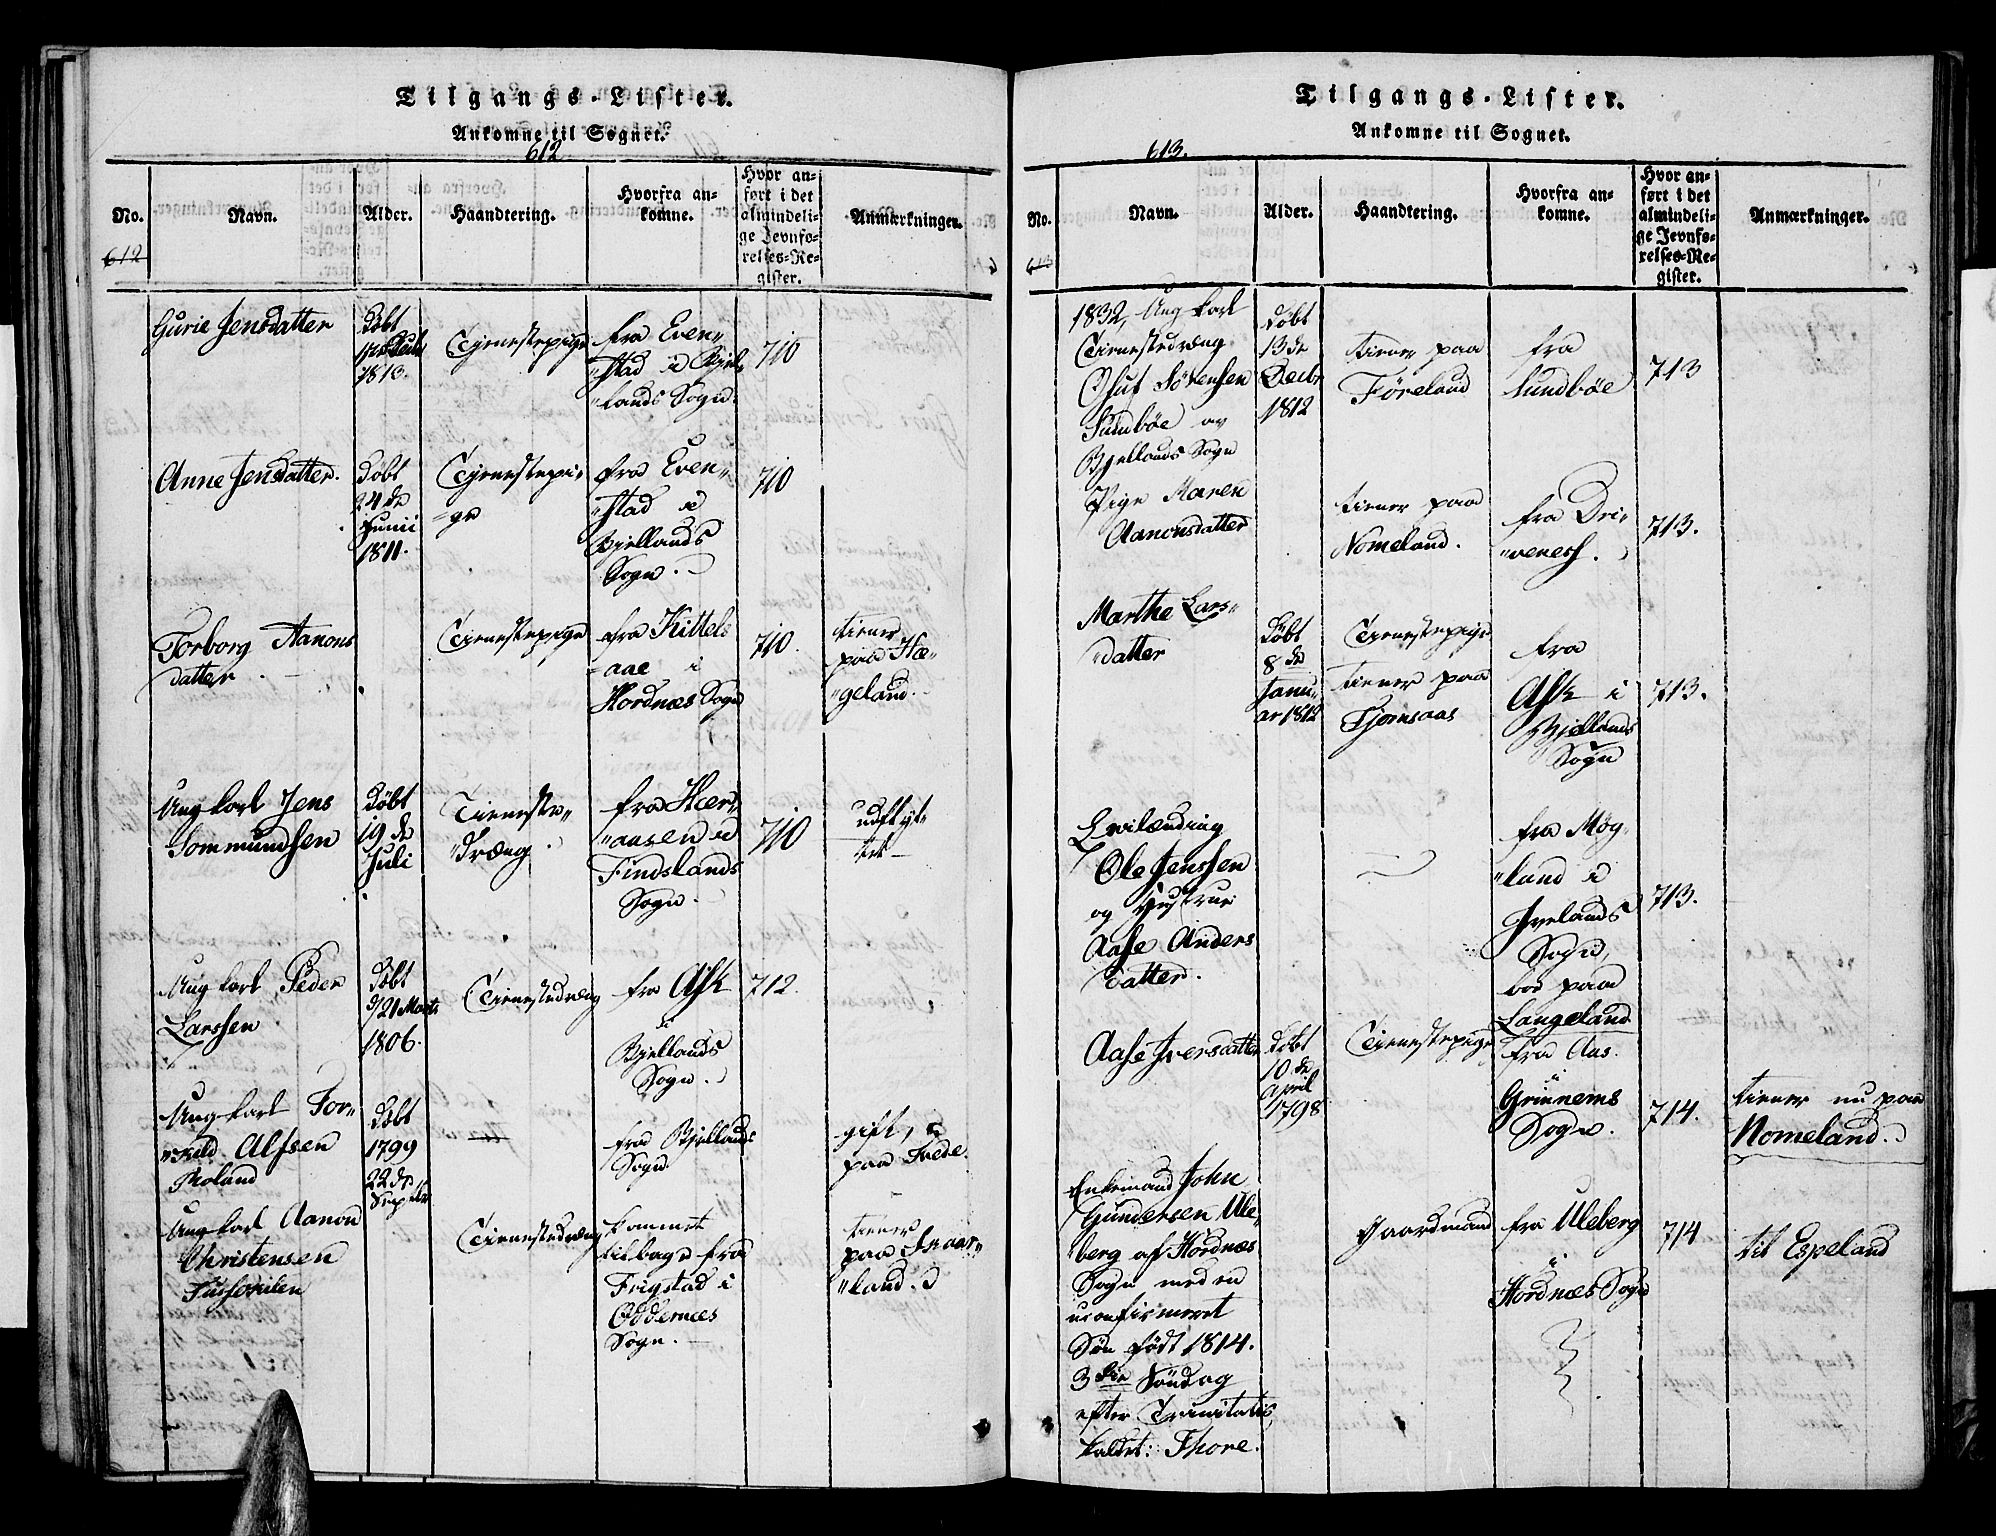 Tilgangs-Lister.
Ankomne til Sognet.
612
No.
Navn.
Alder.
Haandtering.
Hvorfra an-
komne.
Hvor an-
ført i det
almindeli-
ge Jevnfø-
relses-Re-
gister.
Anmærkninger.
612
Gurie Jensdatter
Døbt
1813.
Tjenestepige
fra Even-
stad i Bjel-
lands Sogn.
710
Anne Jensdatter.
Døbt
24de
Junii
1811.
Tjenestepi-
ge
fra Even-
stad i
Bjellands
Sogn.
710
Torborg Aanons
datter
Tienestepige
fra Kittels
aae i
Hordnæs Sogn
710.
tiener
paa Hæ-
geland.
Ung karl Jens
Gommundsen
Døbt
19de
Juli
Tieneste-
dræng.
fra Hær-
aasen i
Findslands
Sogn.
710
udflyt-
tet
Ung karl Peder
Larssen
Døbt
21 Marts
1806.
Tienestedræng
fra Ask
i
Bjellands
Sogn.
712.
Ung karl Tor-
kild Alfsen
Røland
Døbt
1799
22de
Septbr
fra Bjellands
Sogn
gift,
paa Frede.
Ung karl Aanon
Christensen
Tienestedræng
kommet
tilbage fra
Frigstad i
Oddernæs
Sogn.
tiener
paa Snaar-
land.
Tilgangs-Lister.
Ankomne til Sognet.
613.
No.
Navn.
Alder.
Haandtering.
Hvorfra an-
komne.
Hvor an-
ført i det
almindeli-
ge Jevnfø-
relses-Re-
gister.
Anmærkninger.
613
1832, Ung karl
Tienestedræng
Oluf Sørensen
Sundbøe av
Bjellands Sogn
døbt
13de
Decbr
1812
tiener paa
Føreland
fra
Sundbøe
713
Pige Maren
Aanonsdatter
tiener paa
Nomeland.
fra Dri-
veness.
713.
Marthe Lars-
datter
Døbt
8de
Janu-
ar 1812
Tienestepige
tiener paa
Tjomsaas
fra
Ask i
Bjellands
Sogn
713.
Ole Jenssen
og Hustrue
Aase Anders
datter.
fra Møg-
land i
Ivelands
Sogn,
boe paa
Langeland
713.
Aase Iversdatter
Døbt
10de
April
1798
Tienestepige
fra Aas.
i
Grinnems
Sogn.
714.
tiener nu paa
Nomeland.
Enkemand John
Gundersen Ule-
berg af Hordnæs
Sogn med en
uconfirmeret
Søn født 1814.
3die Søndag
efter Trinitatis,
kaldet: Thore.
Gaardmand
fra Uleberg
i
Hordnæs Sogn
714
til Espeland